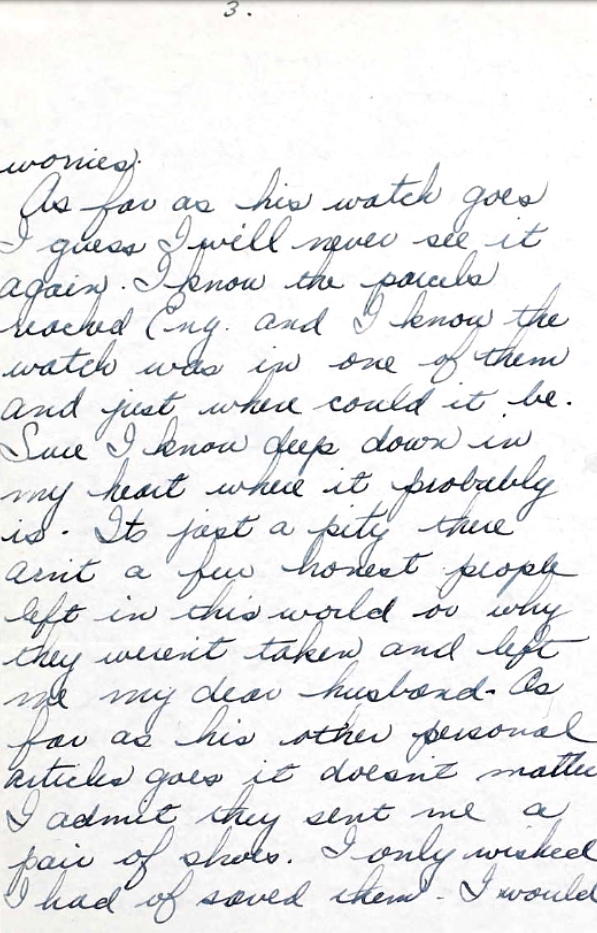 3.
worries.
As far as his watch goes
I guess I will never see it
again. I know the parcels
reached Eng. and I know the
watch was in one of them
and just where could it be.
Sure I know deep down in
my heart where it probably
is. Its just a pity there
arnt a few honest people
left in this world or why
they werent taken and left
me my dear husband. As
far as his other personal
articles goes it doesn't matter
I admit they sent me a
pair of shoes. I only wished
I had of saved them. I would